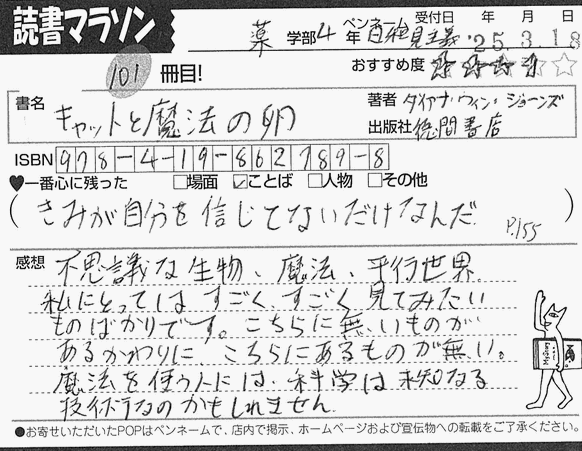 読書マラソン
薬 学部4年 ペンネーム 百種見主義 受付日 '25年3月18日
101冊目! おすすめ度 ☆☆☆☆☆
書名 キャットと魔法の卵 著者 ダイアナ・ウィン・ジョーンズ
出版社 徳間書店
ISBN 978-4-19-862789-8
♥一番心に残った □場面 ☑ことば □人物 □その他
(きみが自分を信じてないだけなんだ P.155)
感想 不思議な生物、魔法、平行世界。
私にとってはすごく、すごく見てみたい
ものばかりです。こちらに無いものが
あるかわりに、こちらにあるものが無い。
魔法を使う人には、科学は未知なる
技術なのかもしれません。
●お寄せいただいたPOPはペンネームで、店内で掲示、ホームページおよび宣伝物への転載をご了承ください。